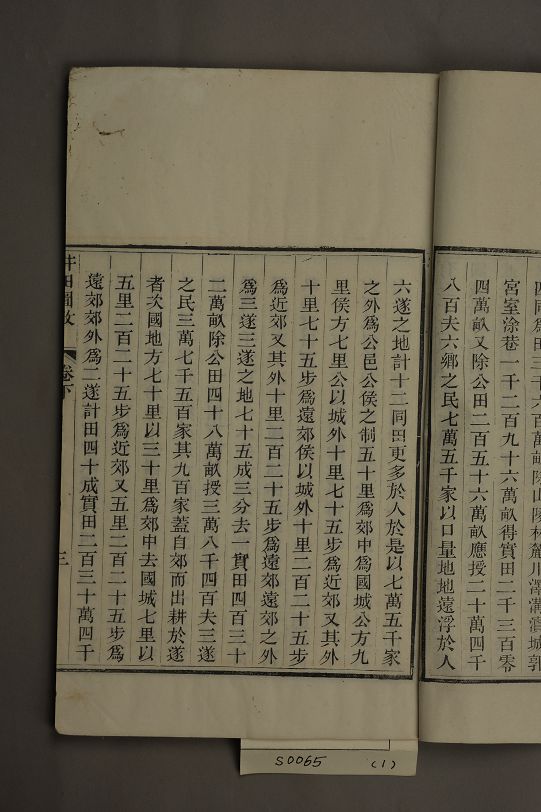 四同爲田三千六百萬畝除山陵林麓川澤溝瀆城郭
宮室涂巷一千二百九十六萬畝得實田二千三百零
四萬畝又除公田二百五十六萬畝應授二十萬四千
八百夫六鄉之民七萬五千家以口量地地遠浮於人
六遂之地計十二同田更多於人於是以七萬五千家
之外爲公邑公侯之制五十里爲郊中爲國城公方九
里侯方七里公以城外十里七十五步爲近郊又其外
十里七十五步爲遠郊侯以城外十里二百二十五步
爲近郊又其外十里二百二十五步爲遠郊遠郊之外
爲三遂三遂之地七十五成三分去一實田四百三十
二萬畝除公田四十八萬畝授三萬八千四百夫三遂
之民三萬七千五百家其九百家蓋自郊而出耕於遂
者次國地方七十里以三十里爲郊中去國城七里以
五里二百二十五步爲近郊又五里二百二十五步爲
遠郊郊外爲二遂計田四十成實田二百三十萬四千
井田圖攷
卷下
三
S0065 (1)